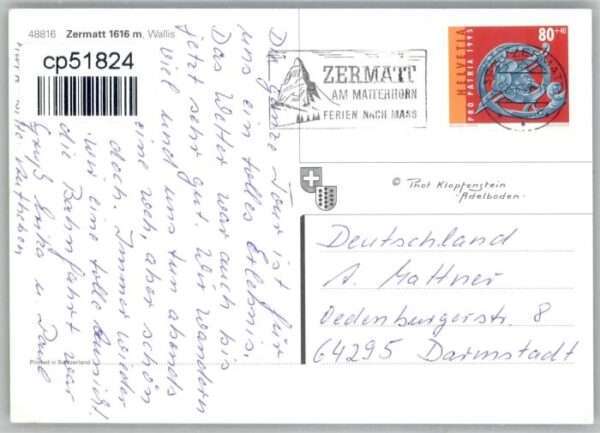 48816 Zermatt 1616 m, Wallis
cp51824
Die ganze Tour ist für
uns ein tolles Erlebnis.
Das Wetter war auch bis
jetzt sehr gut. Wir wandern
viel und uns tun abends
eine weh, aber schön
doch. Immer wieder
wir eine tolle Aussicht.
die Bahnfahrt war
Gruß u
Printed in Switzerland
ZERMATT
AM MATTERHORN
FERIEN NACH MASS
HELVETIA
PRO PATRIA 1995
80+40
© Phot Klopfenstein
Adelboden
Deutschland
A. Mattner
Oedenburgerstr. 8
64295 Darmstadt